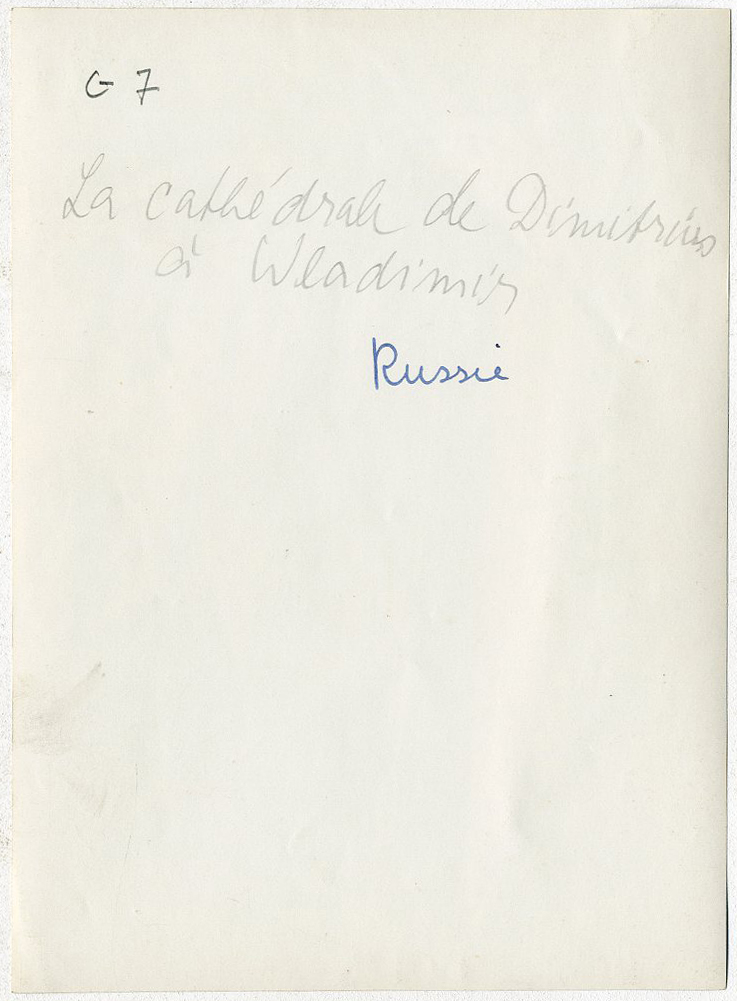 G 7
La cathédrale de Dimitrius
à Wladimir
Russie